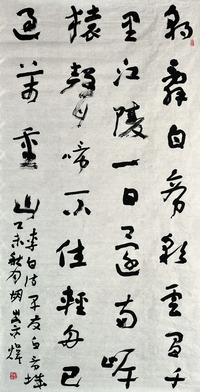 朝辭白帝彩雲間千
里江陵一日還兩岸
猿聲啼不住輕舟已
過萬重山
李白诗早发白帝城
丁未秋月